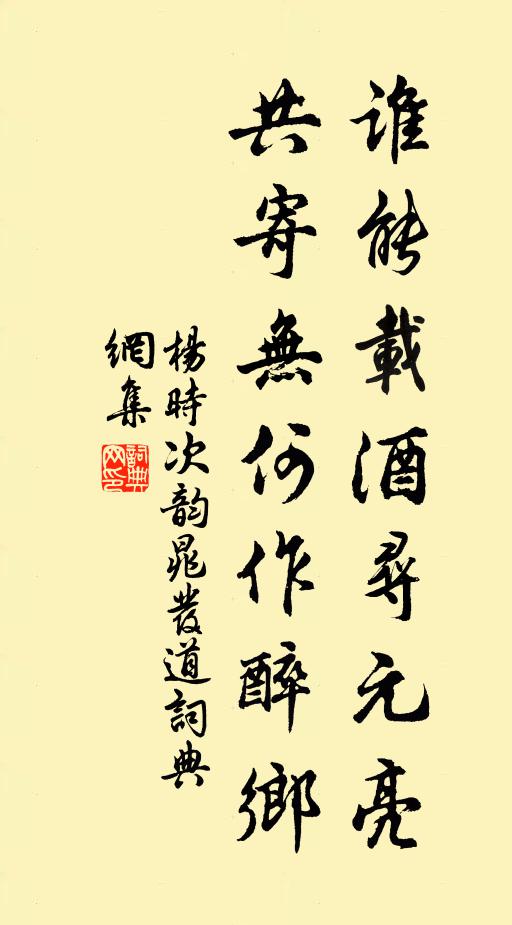 谁能載酒尋元亮
共寄無何作醉鄉
楊時次韵晁發道詞典
網集
詞典網印